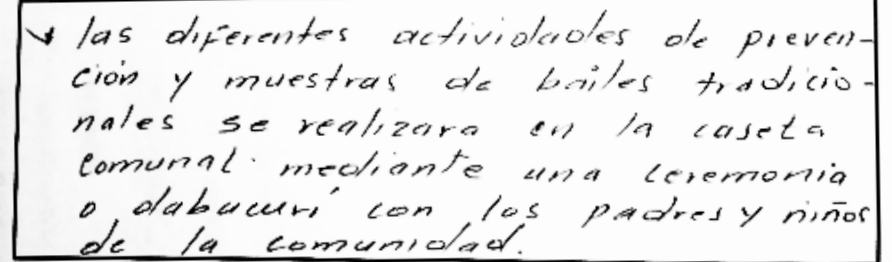 ↓ las diferentes actividades de preven-
ción y muestras de bailes tradicio-
nales se realizara en la caseta
comunal. mediante una ceremonia
o dabucurí con los padres y niños
de la comunidad.